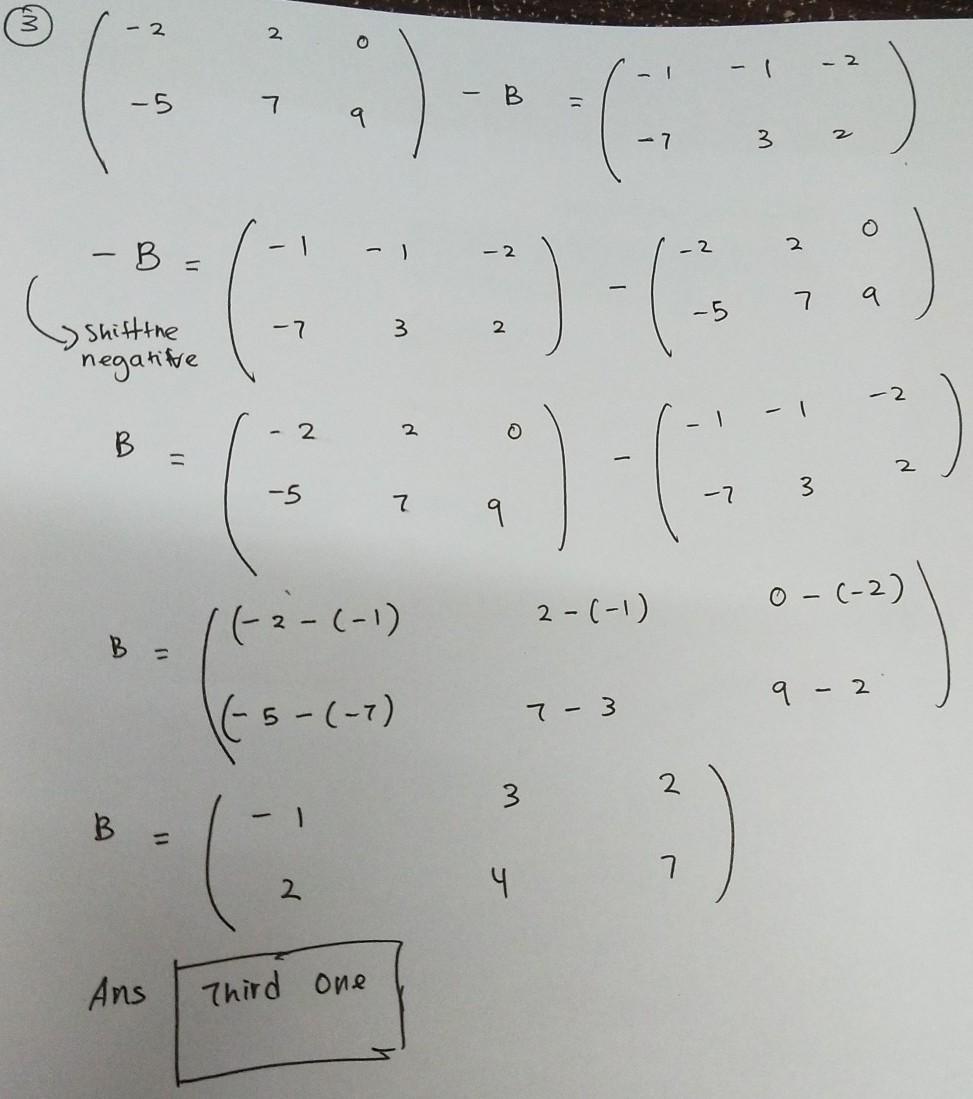 ③ ( -2 2 0
-5 7 9 ) - B = ( -1 -1 -2
-7 3 2 )
- B = ( -1 -1 -2
-7 3 2 ) - ( -2 2 0
-5 7 9 )
shift the
negative
B = ( -2 2 0
-5 7 9 ) - ( -1 -1 -2
-7 3 2 )
B = ( (-2 - (-1) 2 - (-1) 0 - (-2)
(-5 - (-7) 7 - 3 9 - 2 )
B = ( -1 3 2
2 4 7 )
Ans Third One